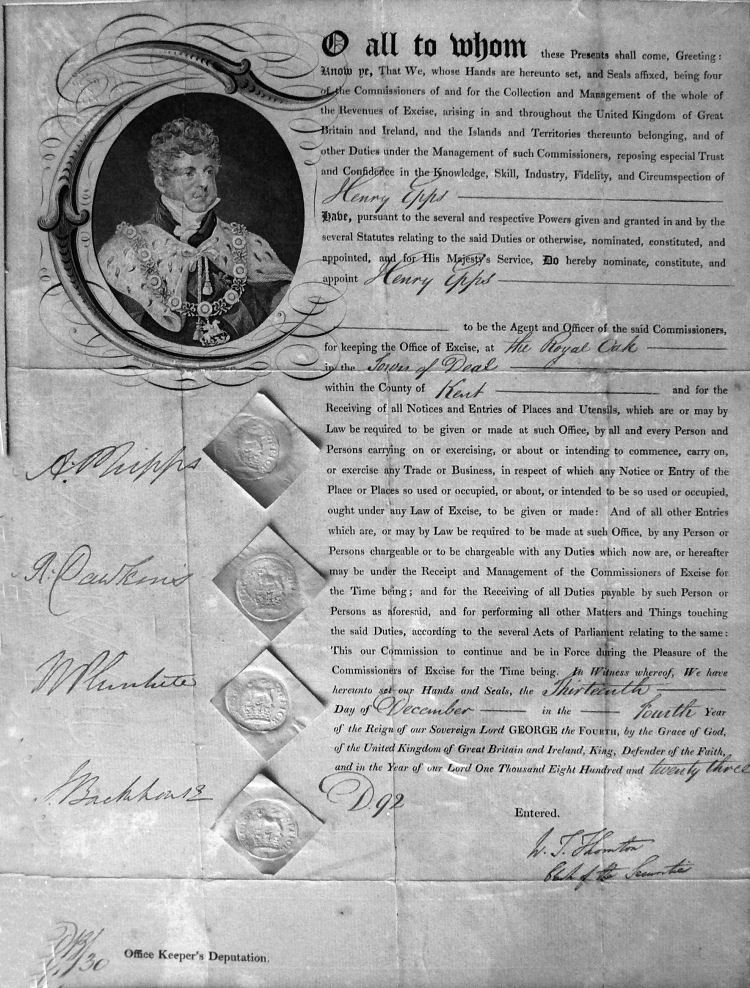 TO all to whom these Presents shall come, Greeting:
Know ye, That We, whose Hands are hereunto set, and Seals affixed, being four
of the Commissioners of and for the Collection and Management of the whole of
the Revenues of Excise, arising in and throughout the United Kingdom of Great
Britain and Ireland, and the Islands and Territories thereunto belonging, and of
other Duties under the Management of such Commissioners, reposing especial Trust
and Confidence in the Knowledge, Skill, Industry, Fidelity, and Circumspection of
Henry Epps
Have, pursuant to the several and respective Powers given and granted in and by the
several Statutes relating to the said Duties or otherwise, nominated, constituted, and
appointed, and for His Majesty's Service, Do hereby nominate, constitute, and
appoint Henry Epps
to be the Agent and Officer of the said Commissioners,
for keeping the Office of Excise, at the Royal Oak
in the Town of Deal
within the County of Kent and for the
Receiving of all Notices and Entries of Places and Utensils, which are or may by
Law be required to be given or made at such Office, by all and every Person and
Persons carrying on or exercising, or about or intending to commence, carry on,
or exercise any Trade or Business, in respect of which any Notice or Entry of the
Place or Places so used or occupied, or about, or intended to be so used or occupied,
ought under any Law of Excise, to be given or made: And of all other Entries
which are, or may by Law be required to be made at such Office, by any Person or
Persons chargeable or to be chargeable with any Duties which now are, or hereafter
may be under the Receipt and Management of the Commissioners of Excise for
the Time being; and for the Receiving of all Duties payable by such Person or
Persons as aforesaid, and for performing all other Matters and Things touching
the said Duties, according to the several Acts of Parliament relating to the same:
This our Commission to continue and be in Force during the Pleasure of the
Commissioners of Excise for the Time being. In Witness whereof, We have
hereunto set our Hands and Seals, the Thirteenth
Day of December in the Fourth Year
of the Reign of our Sovereign Lord GEORGE the FOURTH, by the Grace of God,
of the United Kingdom of Great Britain and Ireland, King, Defender of the Faith,
and in the Year of our Lord One Thousand Eight Hundred and twenty three
A. Phipps
R. Dawkins
W Plunkete
J. Backhouse
D92
Entered.
W. T. Thornton
Clerk of the Securities
Office Keeper's Deputation.